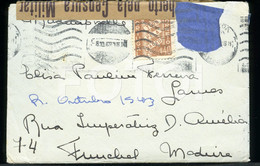 berto pela Censura Militar
Elisa Paulina Ferreira
Lomes
R. Outubro 1943
Rua Imperatriz D. Amélia
74
Funchal Madeira